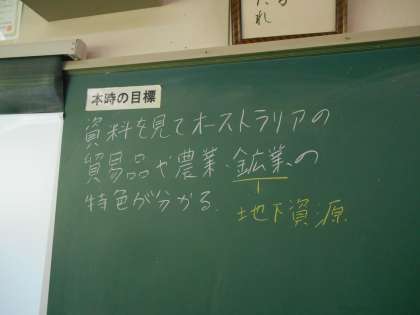 たれ
本時の目標
資料を見てオーストラリアの
貿易品や農業、鉱業、の
特色が分かる。
地下資源